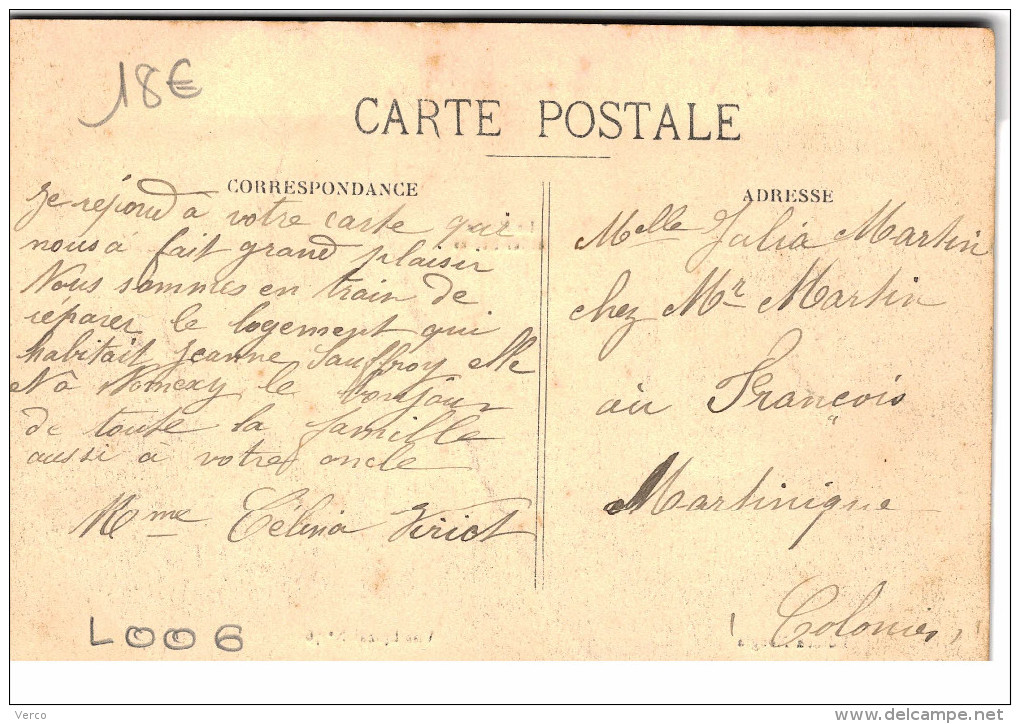 18€
CARTE POSTALE
CORRESPONDANCE
Je répond à votre carte qui
nous a fait grand plaisir
Nous sommes en train de
réparer le logement qui
habitait Jeanne Sauffroy elle
et à Nomexy le bonjour
de toute la famille
aussi à votre oncle
Mme Célina Viriot
ADRESSE
Melle Julia Martin
chez Mr Martin
au François
Martinique
Colonies
L006
Verco
www.delcampe.net